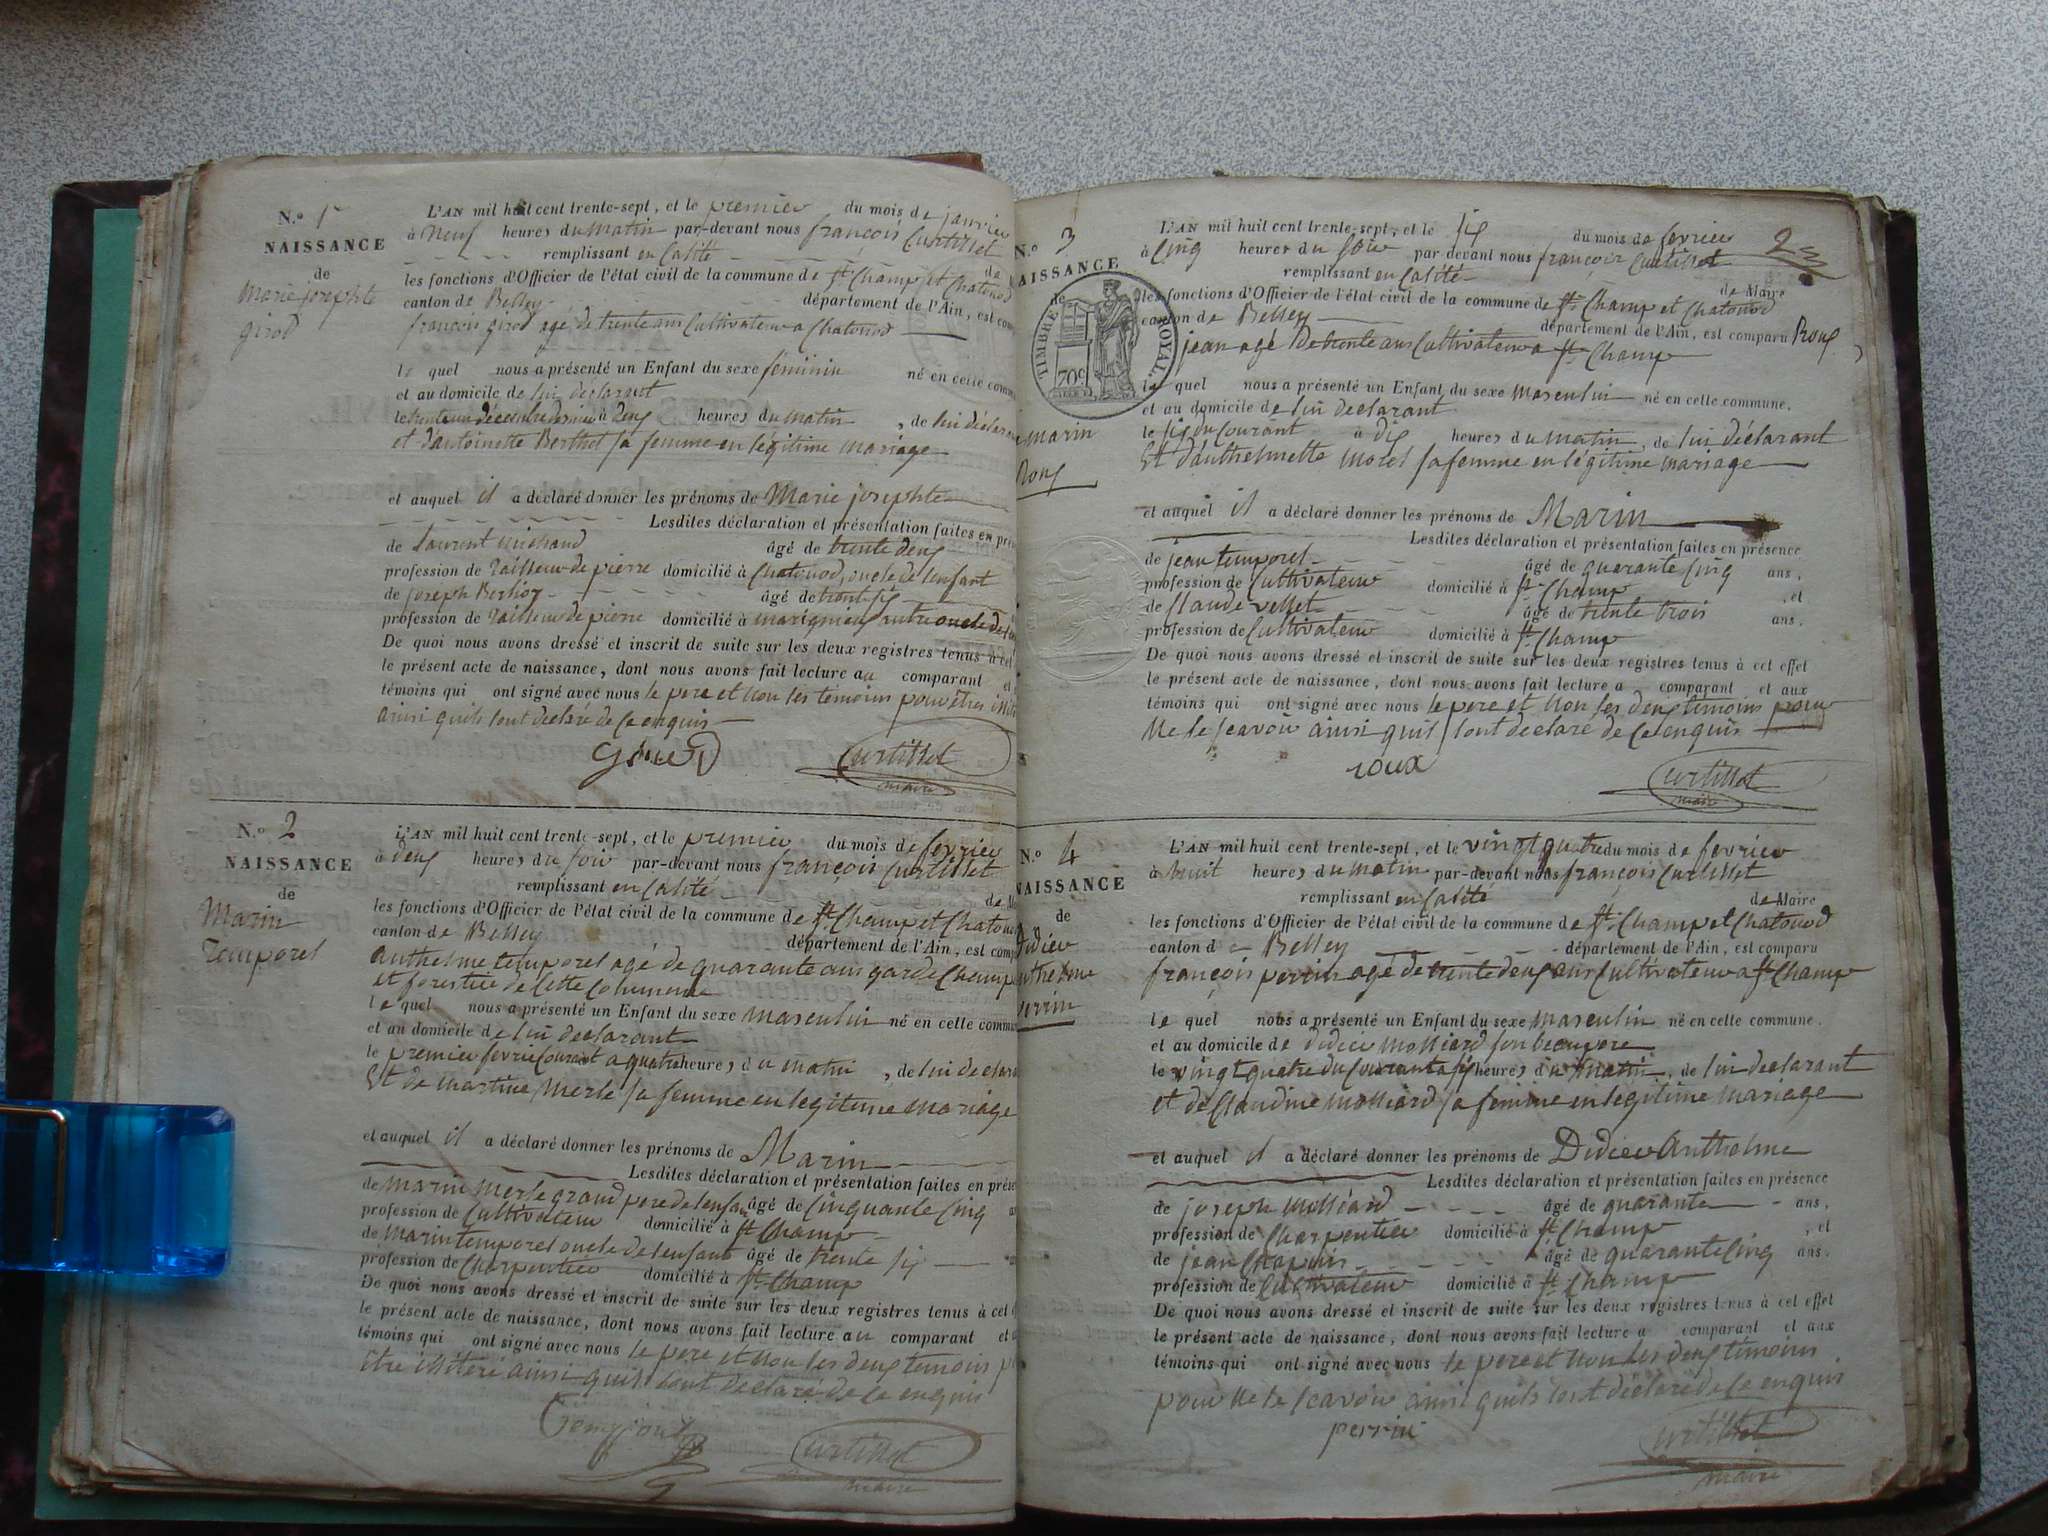 N.º 1er
NAISSANCE
de
Marie josephte
girod
L'AN mil huit cent trente-sept, et le premier du mois de janvier
à neuf heures du matin par-devant nous françois Curtillet
remplissant en Calité de
les fonctions d'Officier de l'état civil de la commune de St Champ et Chatonod
canton de Belley département de l'Ain, est com
françois girod agé de trente ans Cultivateur a Chatonod
le quel nous a présenté un Enfant du sexe féminin né en cette comm
et au domicile de lui déclarant
le trente un décembre dernier à deux heures du matin, de lui déclara
et d'antoinette Berthet sa femme en légitime mariage
et auquel il a déclaré donner les prénoms de Marie josephte
Lesdites déclaration et présentation faites en pré
de Laurent michaud âgé de trente deux
profession de Tailleur de pierre domicilié à Chatonod, oncle de l'enfant
de joseph Berlioz âgé de trente six
profession de Tailleur de pierre domicilié à marignieu autre oncle de
De quoi nous avons dressé et inscrit de suite sur les deux registres tenus à cet
le présent acte de naissance, dont nous avons fait lecture au comparant et
témoins qui ont signé avec nous le pere et non les témoins pour êtres
ainsi quils sont declaré de ce enquis
Girod Curtillet
maire
N.º 2
NAISSANCE
de
Marin
Temporel
L'AN mil huit cent trente-sept, et le premier du mois de fevrier
à deux heures du soir par-devant nous françois Curtillet
remplissant en Calité de M
les fonctions d'Officier de l'état civil de la commune de St Champ et Chatonod
canton de Belley département de l'Ain, est comp
anthelme temporel agé de quarante ans garde Champ
et forestier de Cette Commune
le quel nous a présenté un Enfant du sexe masculin né en cette commu
et au domicile de lui declarant
le premier fevrier Courant a quatre heures du matin, de lui declara
Et de martine merle sa femme en legitime mariage
et auquel il a déclaré donner les prénoms de Marin
Lesdites déclaration et présentation faites en prése
de marin merle grand pere de lenfan âgé de Cinquante Cinq
profession de Cultivateur domicilié à St Champ
de marin temporel oncle de lenfant âgé de trente six
profession de Charpentier domicilié à St Champ
De quoi nous avons dressé et inscrit de suite sur les deux registres tenus à cet
le présent acte de naissance, dont nous avons fait lecture au comparant et
témoins qui ont signé avec nous le pere et non les deux temoins p
Etre illiteré ainsi quils sont declaré de ce enquis
Curtillet
maire
N.º 3
NAISSANCE
de
marin
Roux
TIMBRE ROYAL
70c
2
L'AN mil huit cent trente-sept, et le six du mois de fevrier
à Cinq heures du soir par-devant nous françois Curtillet
remplissant en Calité de Maire
les fonctions d'Officier de l'état civil de la commune de St Champ et Chatonod
canton de Belley département de l'Ain, est comparu Roux
jean agé de trente ans Cultivateur a St Champ
le quel nous a présenté un Enfant du sexe masculin né en cette commune.
et au domicile de lui declarant
le six du Courant à dix heures du matin, de lui déclarant
Et d'anthelmette morel sa femme en légitime mariage
et auquel il a déclaré donner les prénoms de Marin
Lesdites déclaration et présentation faites en présence
de jean temporel âgé de quarante Cinq ans,
profession de Cultivateur domicilié à St Champ, et
de Claude vellet âgé de trente trois ans.
profession de Cultivateur domicilié à St Champ
De quoi nous avons dressé et inscrit de suite sur les deux registres tenus à cet effet
le présent acte de naissance, dont nous avons fait lecture a comparant et aux
témoins qui ont signé avec nous le pere et non les deux temoins pour
Ne le scavoir ainsi quil sont declaré de Ce enquis
roux Curtillet
maire
N.º 4
NAISSANCE
de
Didier
anthelme
perrin
L'AN mil huit cent trente-sept, et le vingt quatre du mois de fevrier
à huit heures du matin par-devant nous françois Curtillet
remplissant en Calité de Maire
les fonctions d'Officier de l'état civil de la commune de St Champ et Chatonod
canton de Belley département de l'Ain, est comparu
françois perrin agé de trente deux ans Cultivateur a St Champ
le quel nous a présenté un Enfant du sexe masculin né en cette commune.
et au domicile de didier molliard son beau pere
le vingt quatre du Courant a six heures du matin, de lui declarant
et de Claudine molliard sa femme en legitime mariage
et auquel il a déclaré donner les prénoms de Didier Anthelme
Lesdites déclaration et présentation faites en présence
de joseph molliard âgé de quarante ans,
profession de Charpentier domicilié à St Champ, et
de jean Chapuis âgé de quarante Cinq ans.
profession de Cultivateur domicilié à St Champ
De quoi nous avons dressé et inscrit de suite sur les deux registres tenus à cet effet
le présent acte de naissance, dont nous avons fait lecture a comparant et aux
témoins qui ont signé avec nous le pere et non les deux témoins
pour ne le scavoir ainsi quils sont déclaré de Ce enquis
perrin Curtillet
maire